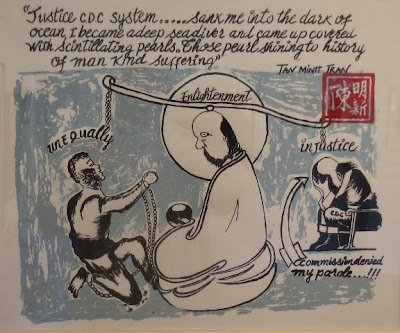 "Justice C.D.C system......sanx me into the dark of
ocean, I became a deep sea diver and came up covered
with scintillating pearls. Those pearl shining to history
of man kind suffering"
TAN MINH TRAN
陳明新
Enlightenment
unequally
injustice
C.D.C
Commission denied
my parole...!!!